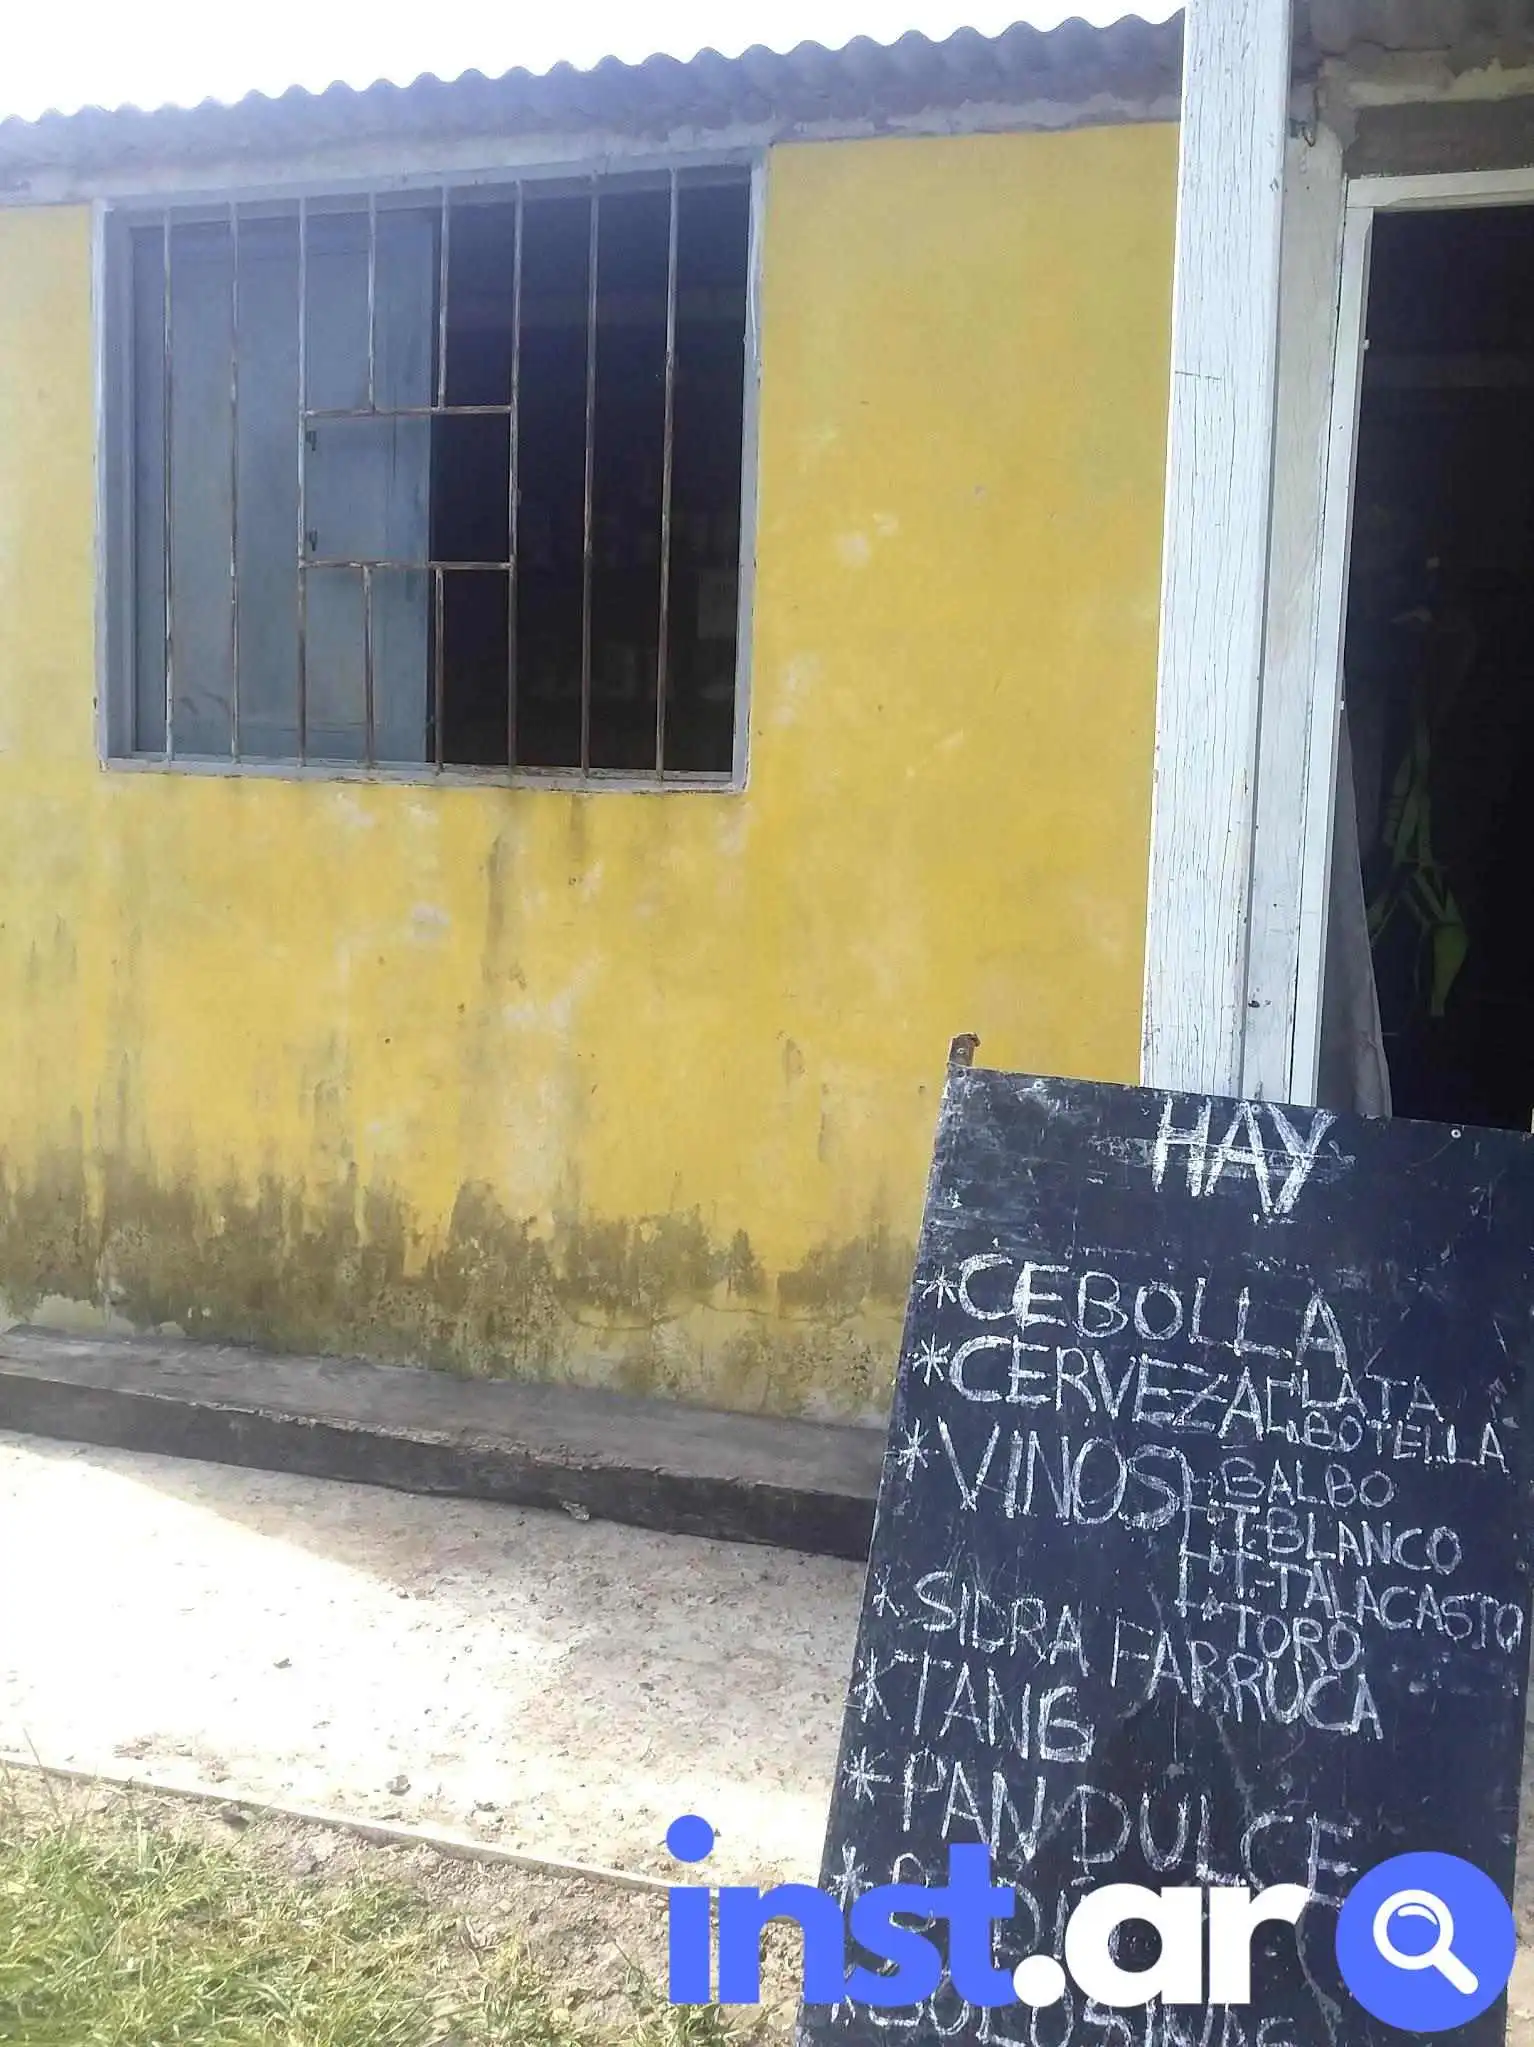 HAY
*CEBOLLA
*CERVEZA LATA
BOTELLA
*VINOS BALBO
T. BLANCO
T-TALACASTO
TORO
*SIDRA FARRUCA
*TANG
*PAN DULCE
*GOLOSINAS
inst.ar